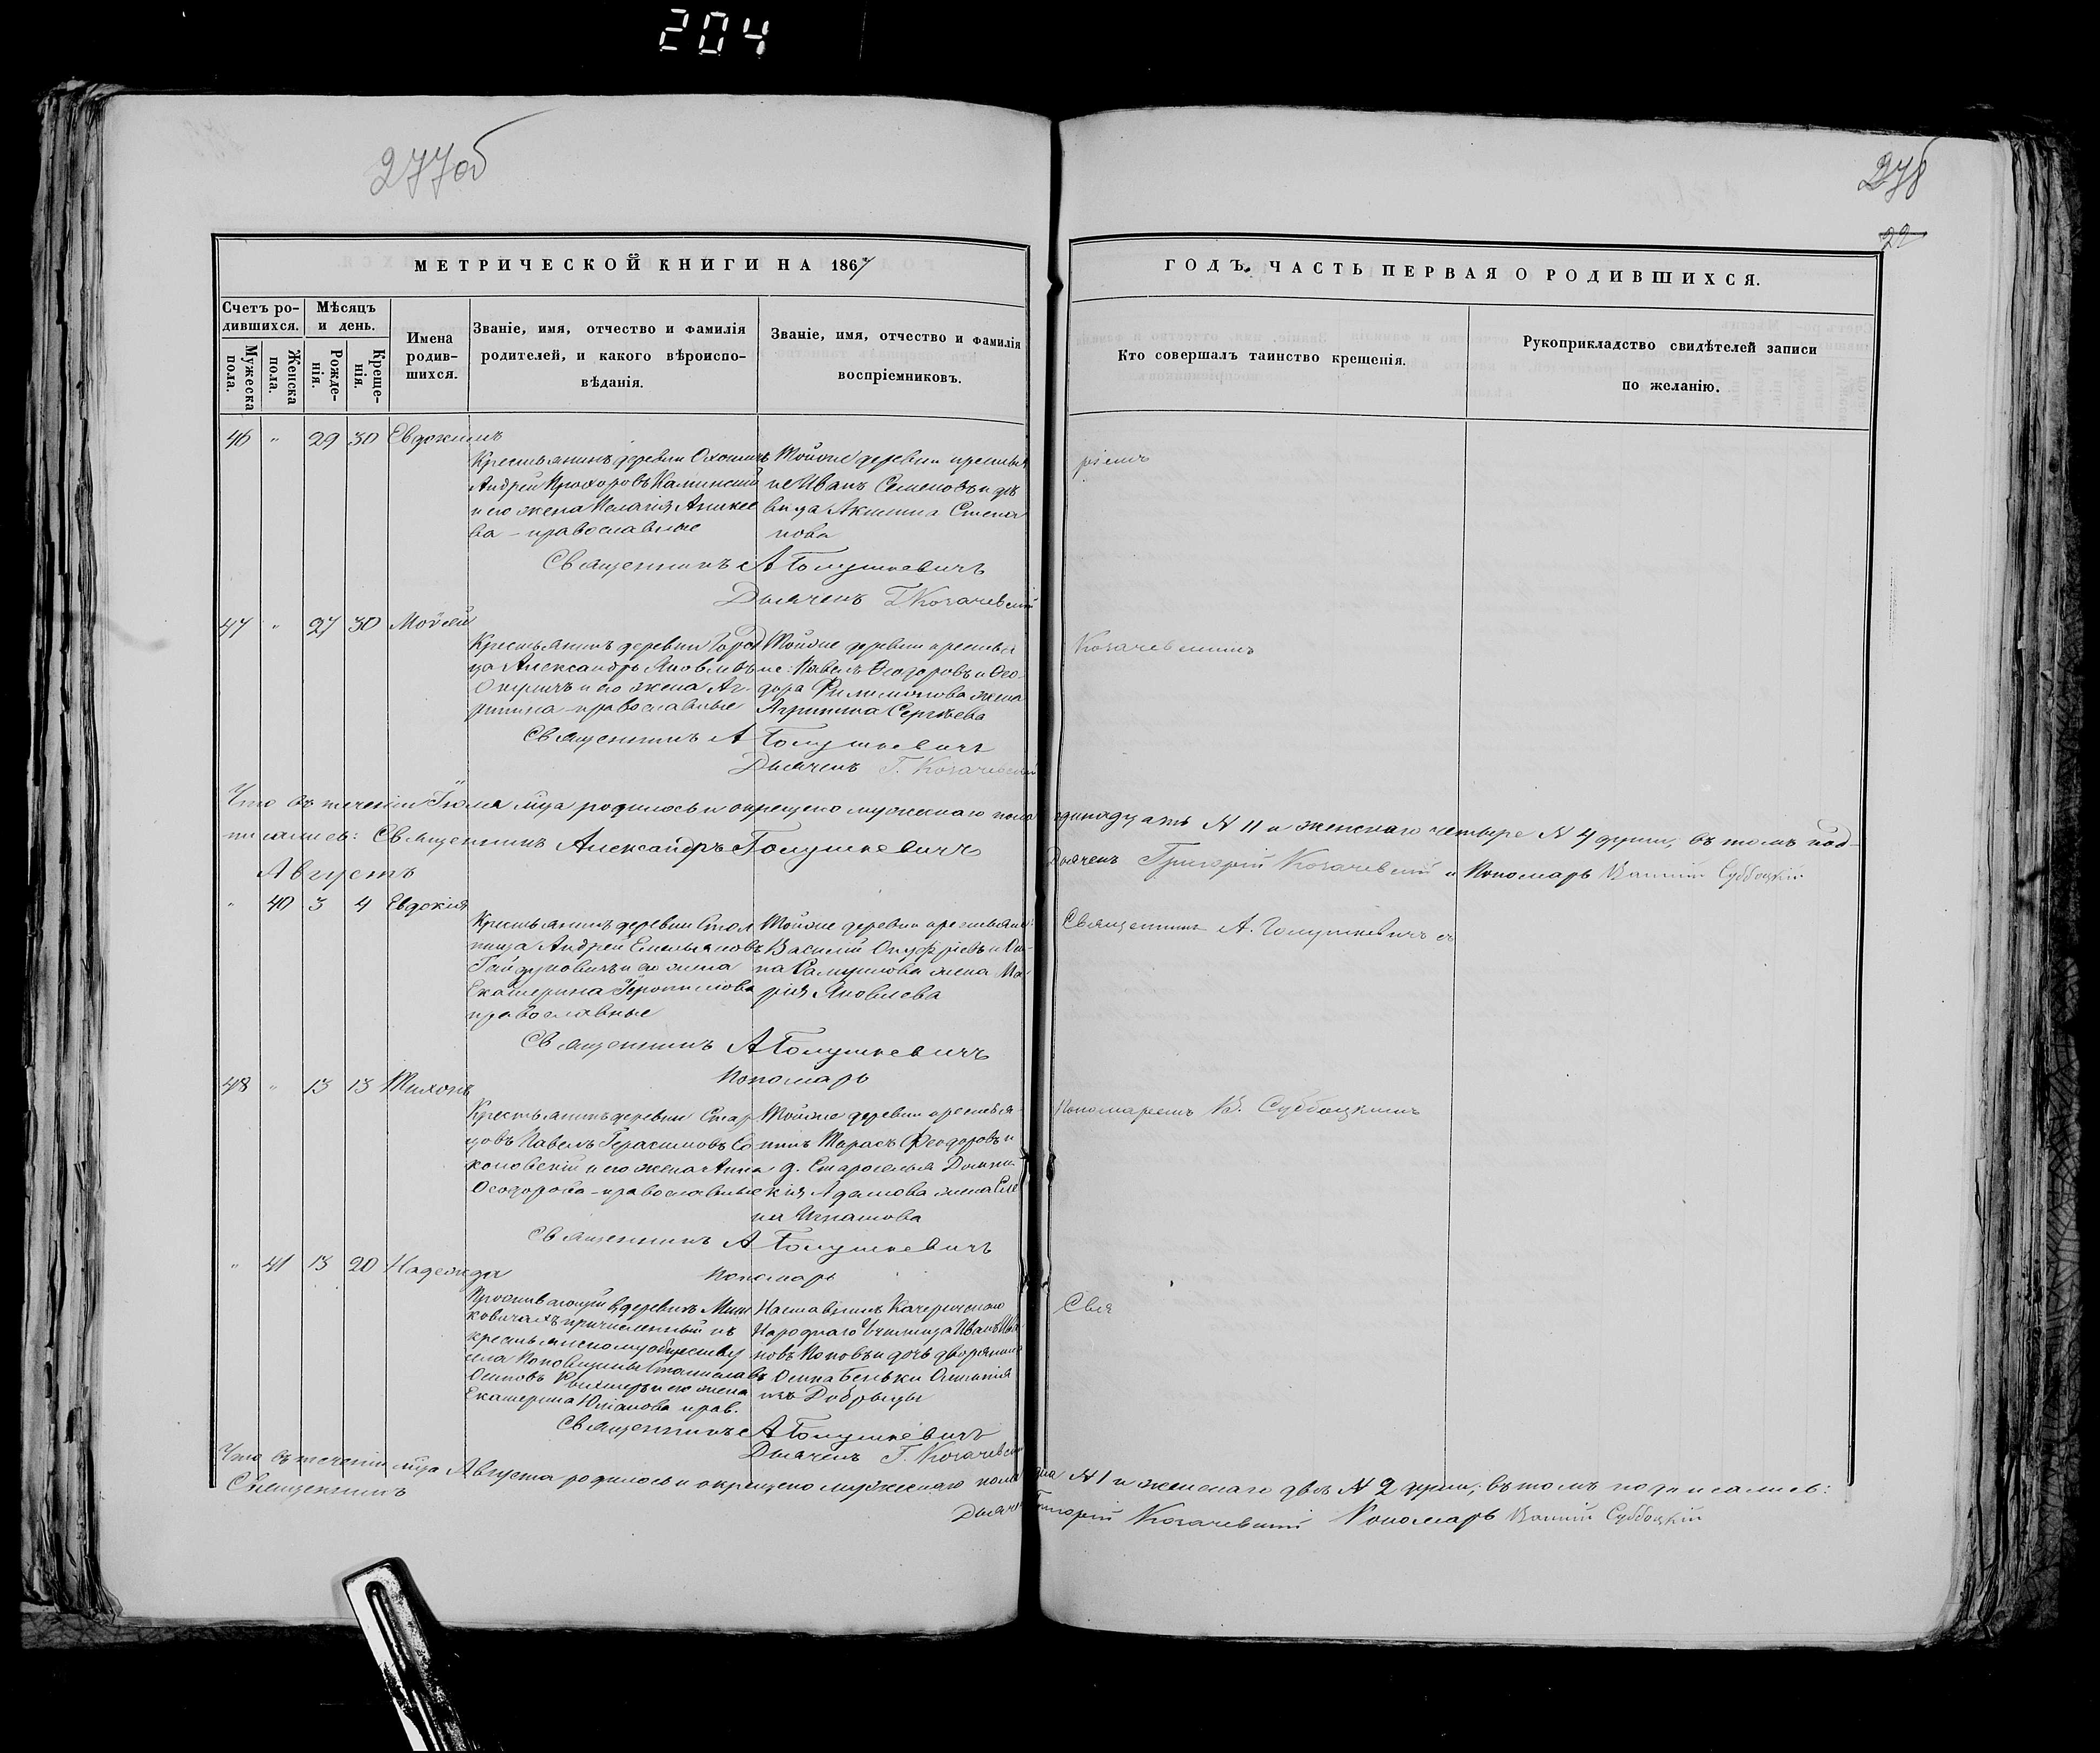 204
277об
278
22
МЕТРИЧЕСКОЙ КНИГИ НА 1867
ГОДЪ. ЧАСТЬ ПЕРВАЯ О РОДИВШИХСЯ.
Счетъ ро-
дившихся.
Мужеска
пола.
Женска
пола.
Мѣсяцъ
и день.
Рожде-
нія.
Креще-
нія.
Имена
родив-
шихся.
Званіе, имя, отчество и фамилія
родителей, и какого вѣроиспо-
вѣданія.
Званіе, имя, отчество и фамилія
воспріемниковъ.
Кто совершалъ таинство крещенія.
Рукоприкладство свидѣтелей записи
по желанію.
46 " 29 30 Евдокимъ
Крестьянинъ деревни
Андрей Прохоровъ Калинскій
и его жена Пелагія Аникее
ва - православные
Тойже деревни крестья
не Иванъ Семеновъ и дѣ
вица Акилина Степа
нова
ріемъ
Священникъ А Голушкевичъ
Дьячекъ Г Козачевскій
47 " 27 30 Мойсей
Крестьянинъ деревни Город
ца Александръ Яковлевъ
и его жена Аг-
рипина православные
Тойже деревни крестья
не: Павелъ Ѳеодоровъ и Ѳео-
дора Филимонова жена
Агрипина Сергѣева
Козачевскимъ
Священникъ А Голушкевичъ
Дьячекъ Г. Козачевскій
Что въ теченіи Іюля мца родилось и окрещено мужескаго пола одинадцать N 11 и женскаго четыре N 4 души, въ томъ под-
писались: Священникъ Александръ Голушкевичъ Дьячекъ Григорій Козачевскій и Пономарь Субботскій
Августъ
" 40 3 4 Евдокія
Крестьянинъ деревни Стол
пища Андрей Емельяновъ
Гайдуковичъ и его жена
Екатерина
православные
Тойже деревни крестьяне:
Василій Онуфріевъ и Он-
на Самуилова жена Ма-
рія Яковлева
Священникъ А. Голушкевичъ съ
Священникъ А Голушкевичъ
Пономарь
48 " 13 13 Тихонъ
Крестьянинъ деревни Стар
цовъ Павелъ Герасимовъ Со
коловскій и его жена Анна
Ѳеодорова - православные
Тойже деревни крестья-
нинъ Тарасъ Феодоровъ и
д. Староселья Домни-
кія Адамова жена Еле
на Игнатова
Пономаремъ В. Субботскимъ
Священникъ А Голушкевичъ
Пономарь
" 41 13 20 Надежда
Проживающій въ деревнѣ Мин
ковичахъ причисленный къ
крестьянскому обществу
села Поповщины Станиславъ
Осиповъ и его жена
Екатерина Юліанова прав.
Наставникъ Качеричскаго
Народнаго Училища Иванъ Ива
новъ Поповъ и дочь дворянина
Осипа Беньки
изъ Добрыцы
Свя
Священникъ А Голушкевичъ
Дьячекъ Г. Козачевскій
Что въ теченіи мца Августа родилось и окрещено мужескаго пола одна N 1 и женскаго двѣ N 2 души; въ томъ подписались:
Священникъ
Дьячекъ Григорій Козачевскій Пономарь Субботскій